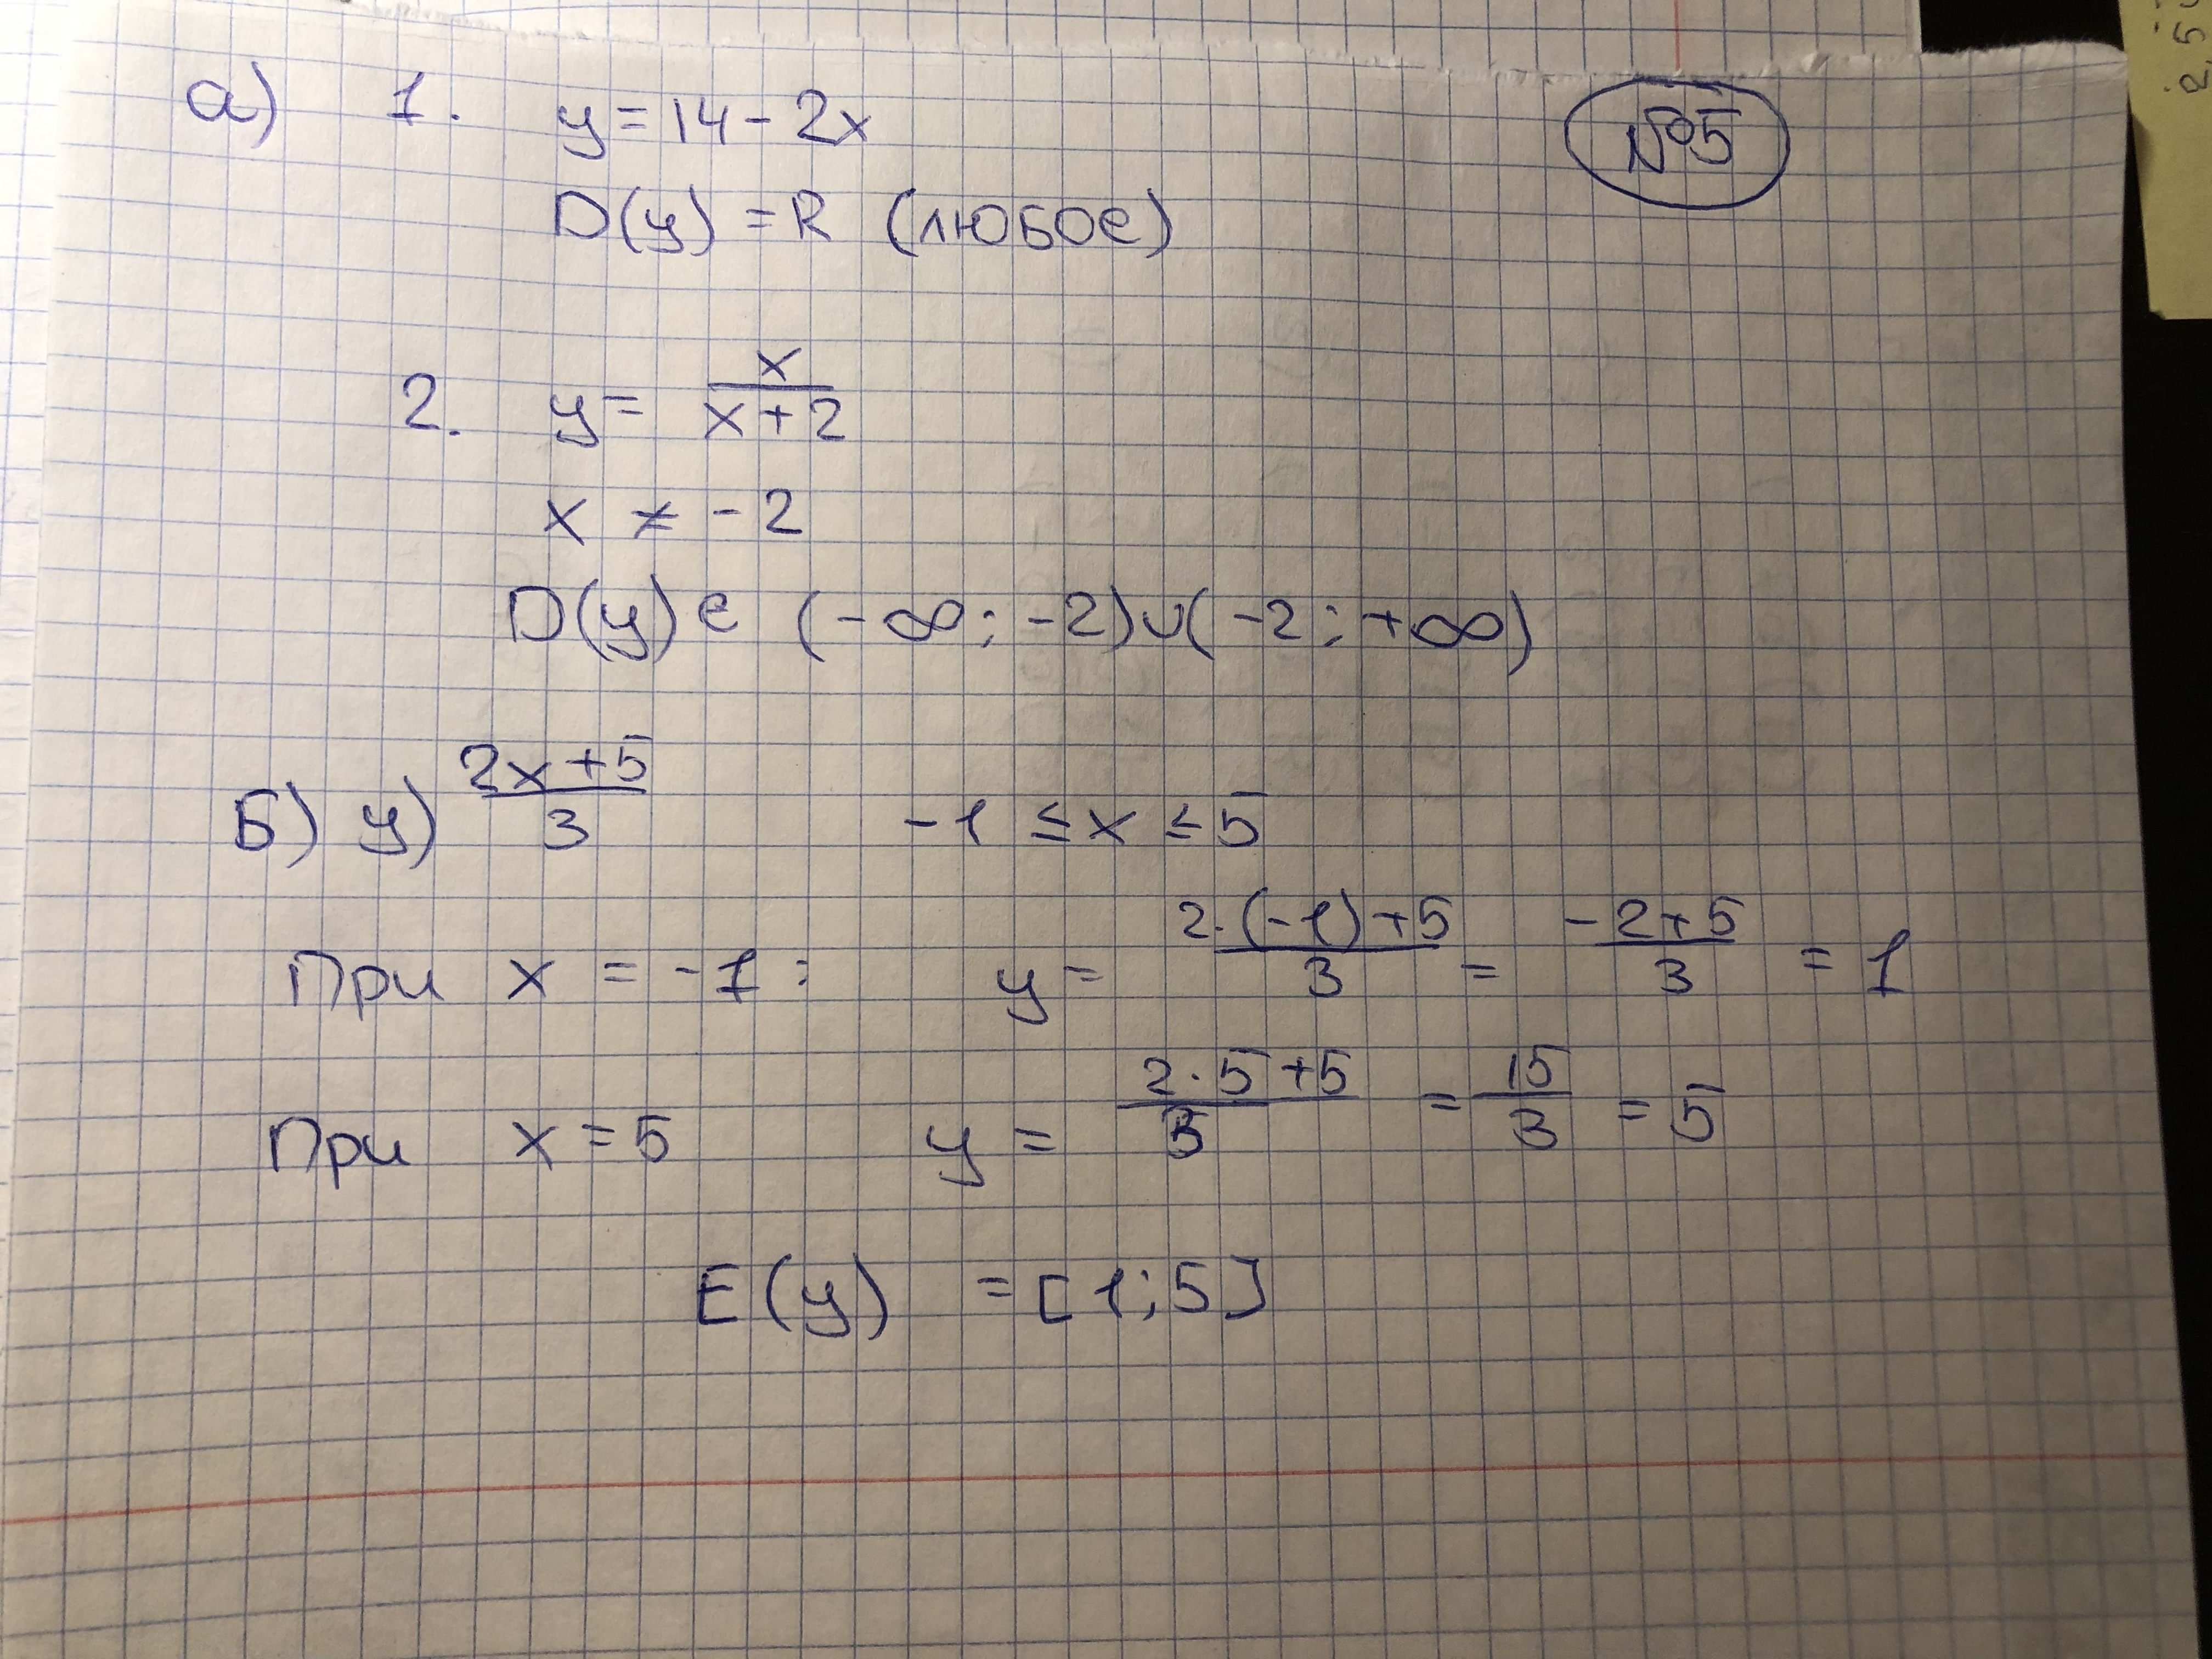 а) 1. y = 14 - 2x
№5
D(y) = R (любое)
2. y = x/(x+2)
x ≠ -2
D(y) е (-∞; -2)∪(-2; +∞)
Б) y) (2x+5)/3 -1 ≤ x ≤ 5
При x = -1: y = (2·(-1)+5)/3 = (-2+5)/3 = 1
При x = 5 y = (2·5+5)/3 = 15/3 = 5
E(y) = [1; 5]